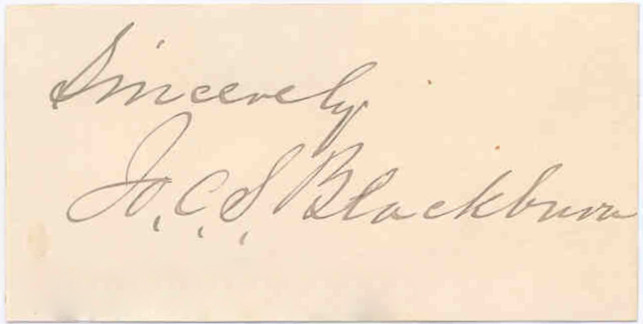 Sincerely
Jo. C. S. Blackburn